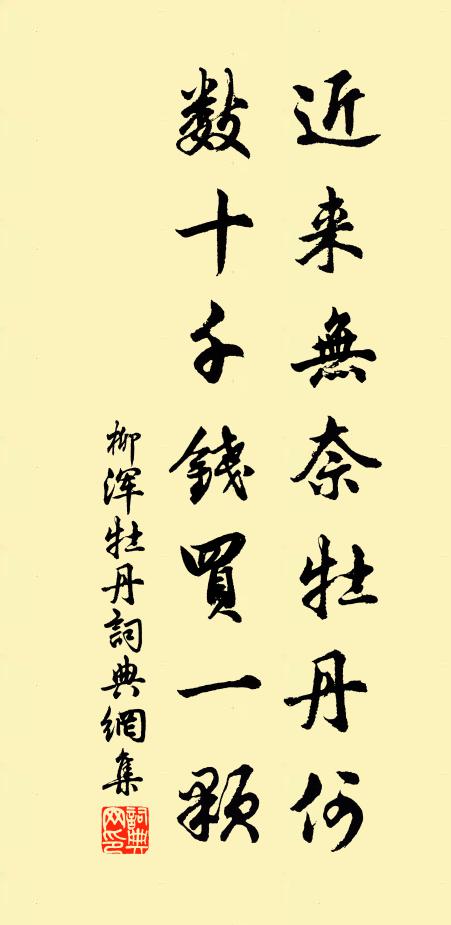 近来無奈牡丹何
數十千錢買一顆
柳渾牡丹詞典網集
詞典网印